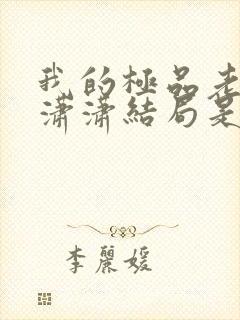 我的極品老
瀟瀟結局是
李麗媛